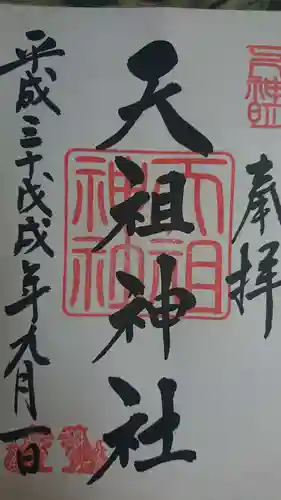 奉拝
天祖神社
天祖神社
平成三十戊戌年九月一日